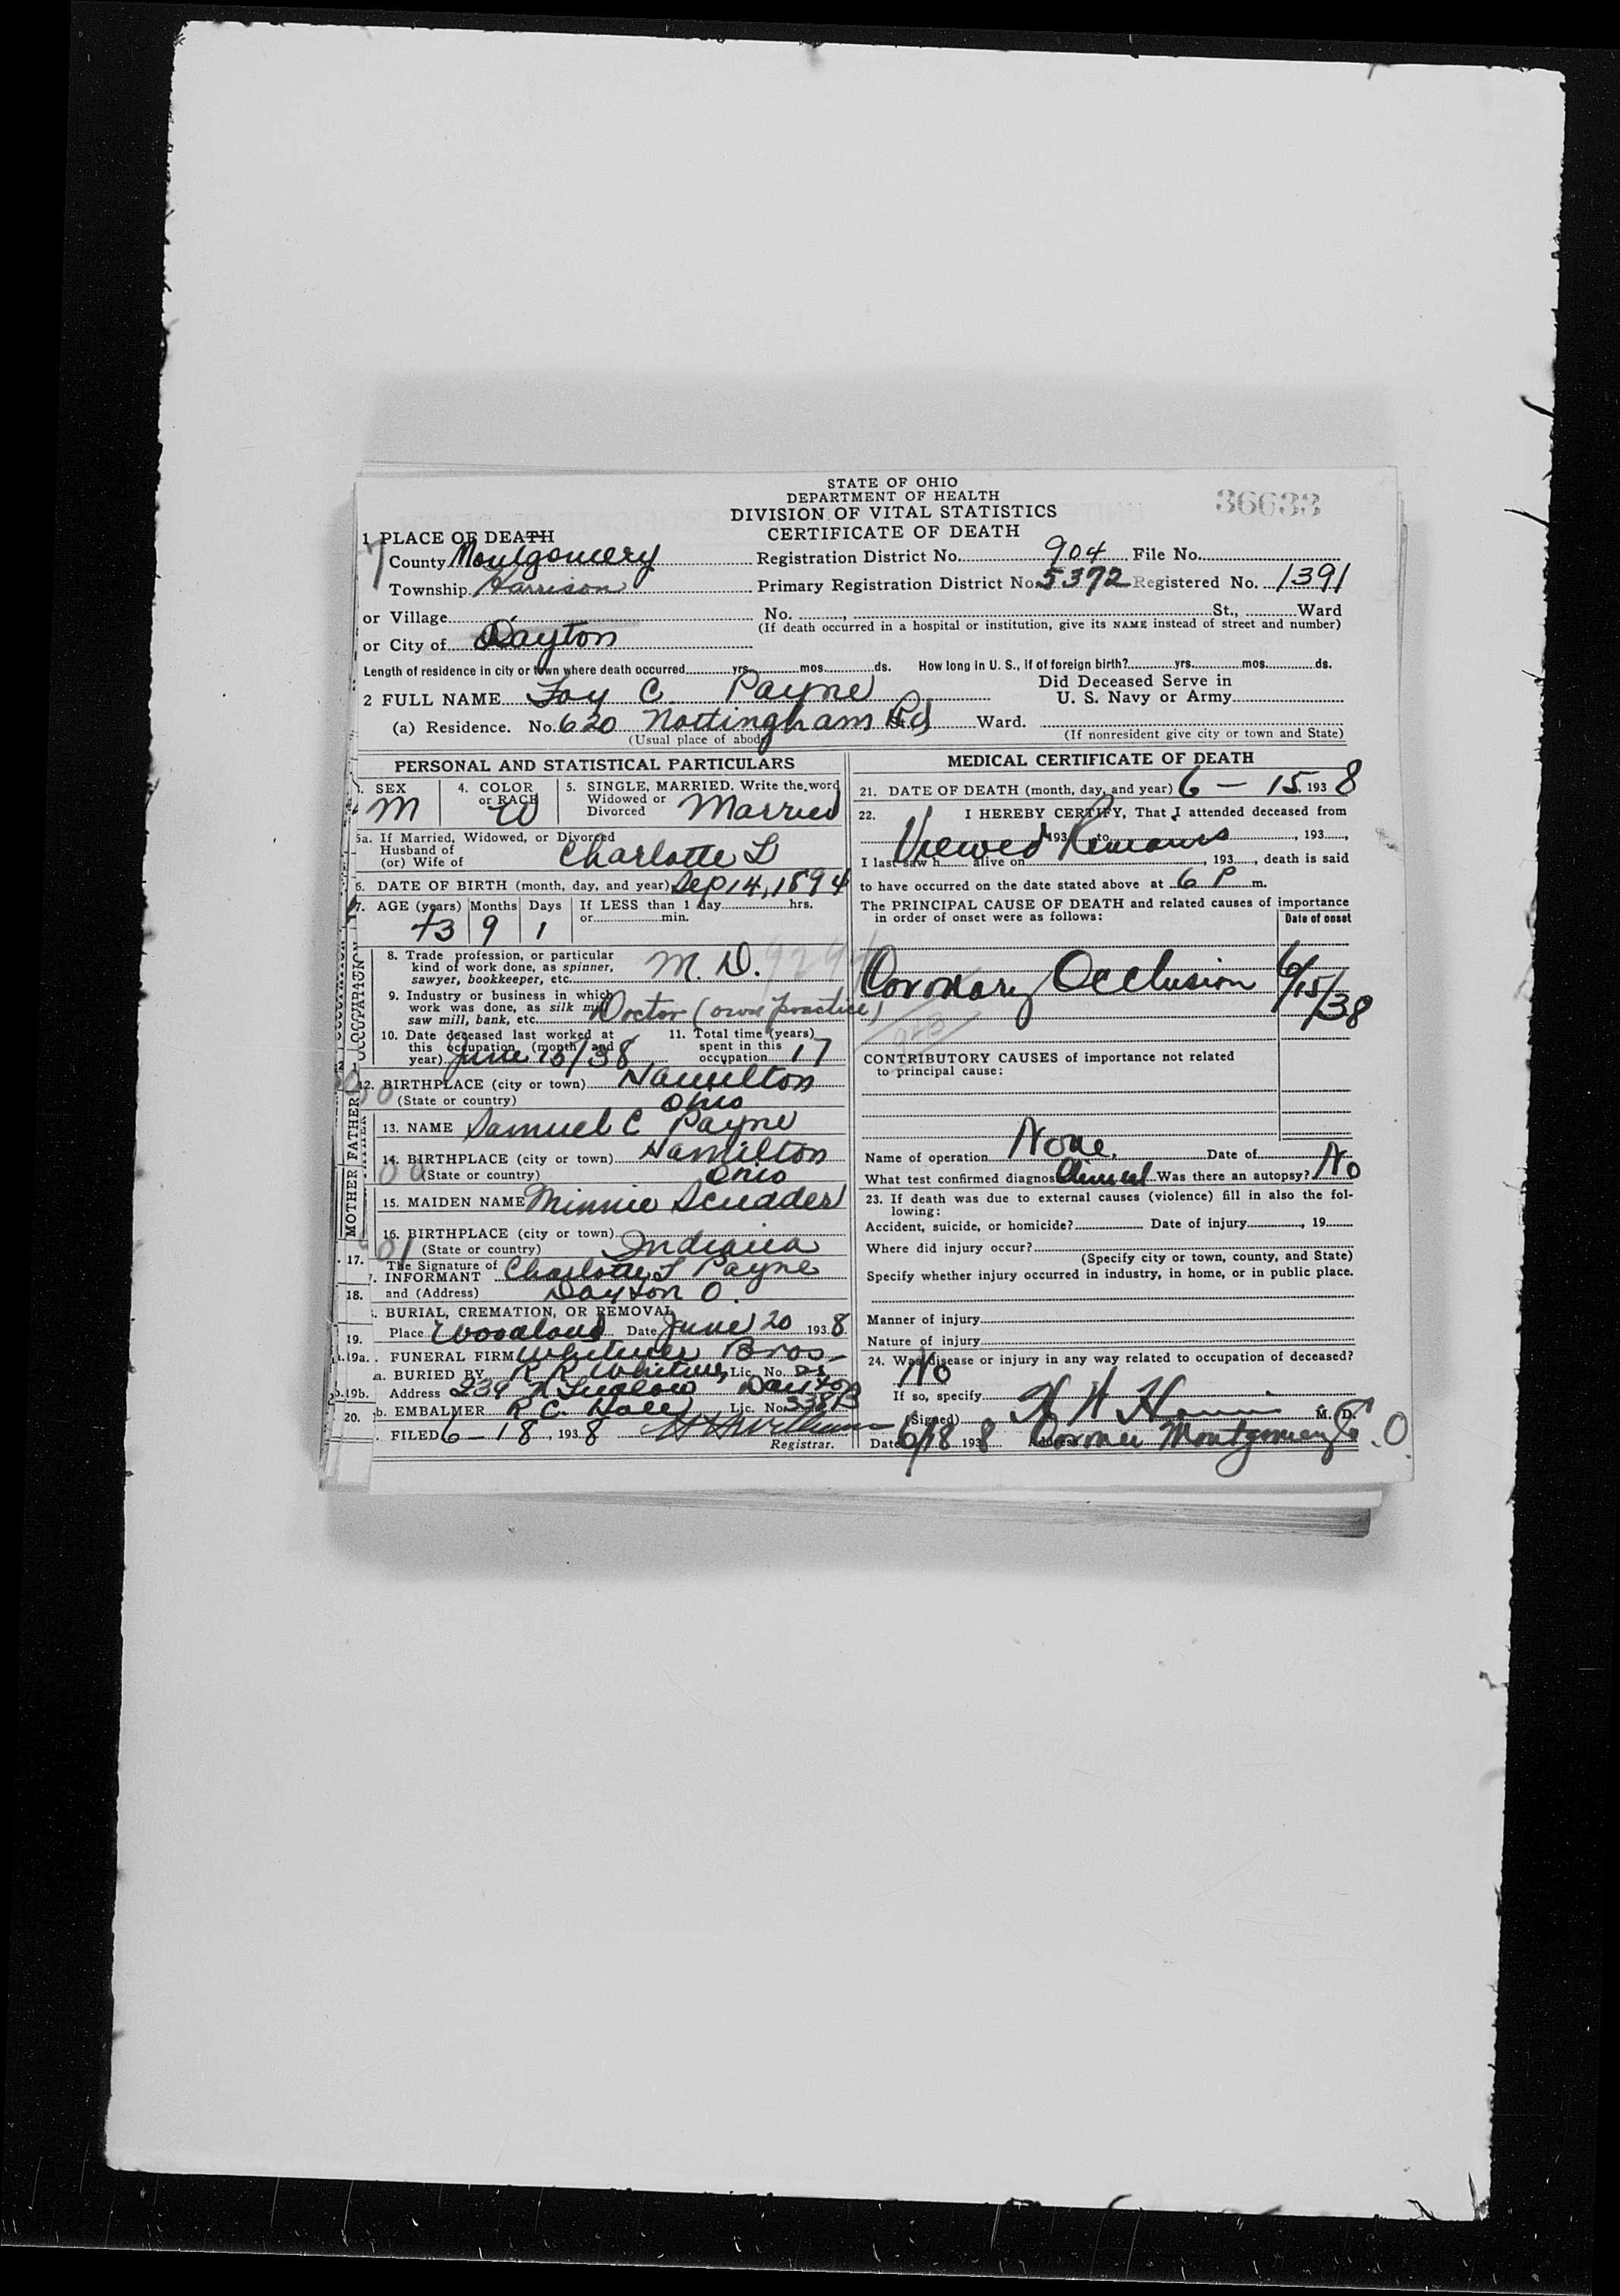 STATE OF OHIO
DEPARTMENT OF HEALTH
DIVISION OF VITAL STATISTICS
CERTIFICATE OF DEATH
36633
1 PLACE OF DEATH
County Montgomery Registration District No. 904 File No.
Township Harrison Primary Registration District No. 5372 Registered No. 1391
or Village No. , St., Ward
(If death occurred in a hospital or institution, give its NAME instead of street and number)
or City of Dayton
Length of residence in city or town where death occurred yrs. mos. ds. How long in U. S., if of foreign birth? yrs. mos. ds.
2 FULL NAME Foy C. Payne Did Deceased Serve in U. S. Navy or Army
(a) Residence. No. 620 Nottingham Rd Ward.
(Usual place of abode) (If nonresident give city or town and State)
PERSONAL AND STATISTICAL PARTICULARS
3. SEX M
4. COLOR or RACE W
5. SINGLE, MARRIED. Write the word Widowed or Divorced Married
5a. If Married, Widowed, or Divorced
Husband of
(or) Wife of Charlotte L
6. DATE OF BIRTH (month, day, and year) Sep 14, 1894
7. AGE (years) Months Days If LESS than 1 day hrs.
or min.
43 9 1
OCCUPATION
8. Trade profession, or particular
kind of work done, as spinner,
sawyer, bookkeeper, etc. M. D.
9. Industry or business in which
work was done, as silk mill
saw mill, bank, etc. Doctor (own practice)
10. Date deceased last worked at
this occupation (month and
year) June 15/38
11. Total time (years)
spent in this
occupation 17
12. BIRTHPLACE (city or town) Hamilton
(State or country) Ohio
FATHER
13. NAME Samuel C Payne
14. BIRTHPLACE (city or town) Hamilton
(State or country) Ohio
MOTHER
15. MAIDEN NAME Minnie Scudder
16. BIRTHPLACE (city or town)
(State or country) Indiana
17. The Signature of
INFORMANT Charlotte L Payne
and (Address) Dayton O.
18. BURIAL, CREMATION, OR REMOVAL
Place Woodland Date June 20 1938
19. FUNERAL FIRM Whitmer Bros
19a. BURIED BY R R Whitmer Lic. No.
Address 239 N Ludlow Dayton
19b. EMBALMER R C. Hall Lic. No. 338B
20. FILED 6-18, 1938
Registrar.
MEDICAL CERTIFICATE OF DEATH
21. DATE OF DEATH (month, day, and year) 6 - 15 1938
22. I HEREBY CERTIFY, That I attended deceased from
Viewed Remains , 193 to , 193 ,
I last saw h alive on , 193 , death is said
to have occurred on the date stated above at 6 P m.
The PRINCIPAL CAUSE OF DEATH and related causes of importance
in order of onset were as follows: Date of onset
Coronary Occlusion 6/15/38
CONTRIBUTORY CAUSES of importance not related
to principal cause:
Name of operation None. Date of
What test confirmed diagnosis Clinical Was there an autopsy? No
23. If death was due to external causes (violence) fill in also the fol-
lowing:
Accident, suicide, or homicide? Date of injury , 19
Where did injury occur?
(Specify city or town, county, and State)
Specify whether injury occurred in industry, in home, or in public place.
Manner of injury
Nature of injury
24. Was disease or injury in any way related to occupation of deceased?
No
If so, specify
(Signed) H H M. D.
Date 6/18 1938 Address Coroner Montgomery Co. O